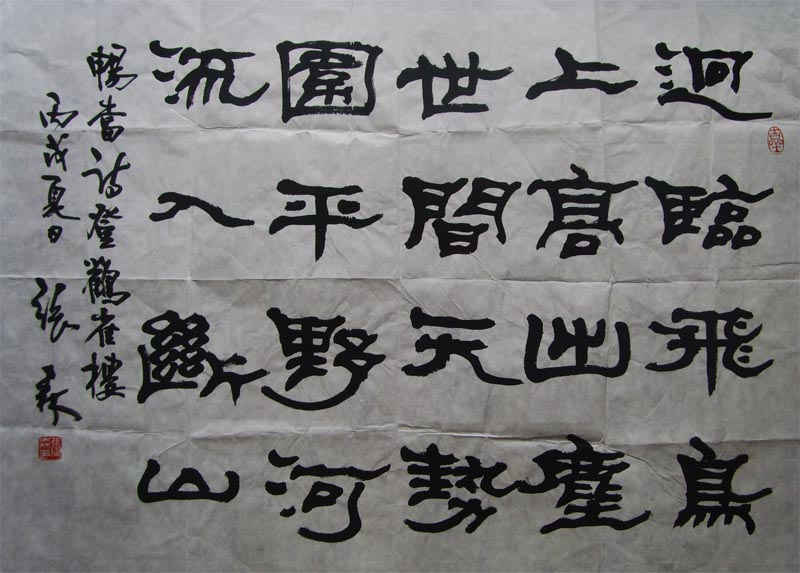 迥臨飛鳥
上高出塵
世間天勢
圍平野河
流入斷山
暢當詩登鸛雀樓
丙戌夏日 張森